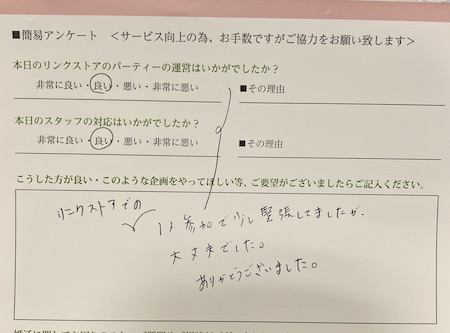 ■簡易アンケート ＜サービス向上の為、お手数ですがご協力をお願い致します＞
本日のリンクストアのパーティーの運営はいかがでしたか？
非常に良い・良い・悪い・非常に悪い ■その理由
本日のスタッフの対応はいかがでしたか？
非常に良い・良い・悪い・非常に悪い ■その理由
こうした方が良い・このような企画をやってほしい等、ご要望がございましたらご記入ください。
リンクストアでの
参加で少し緊張してましたが、
大丈夫でした。
ありがとうございました。